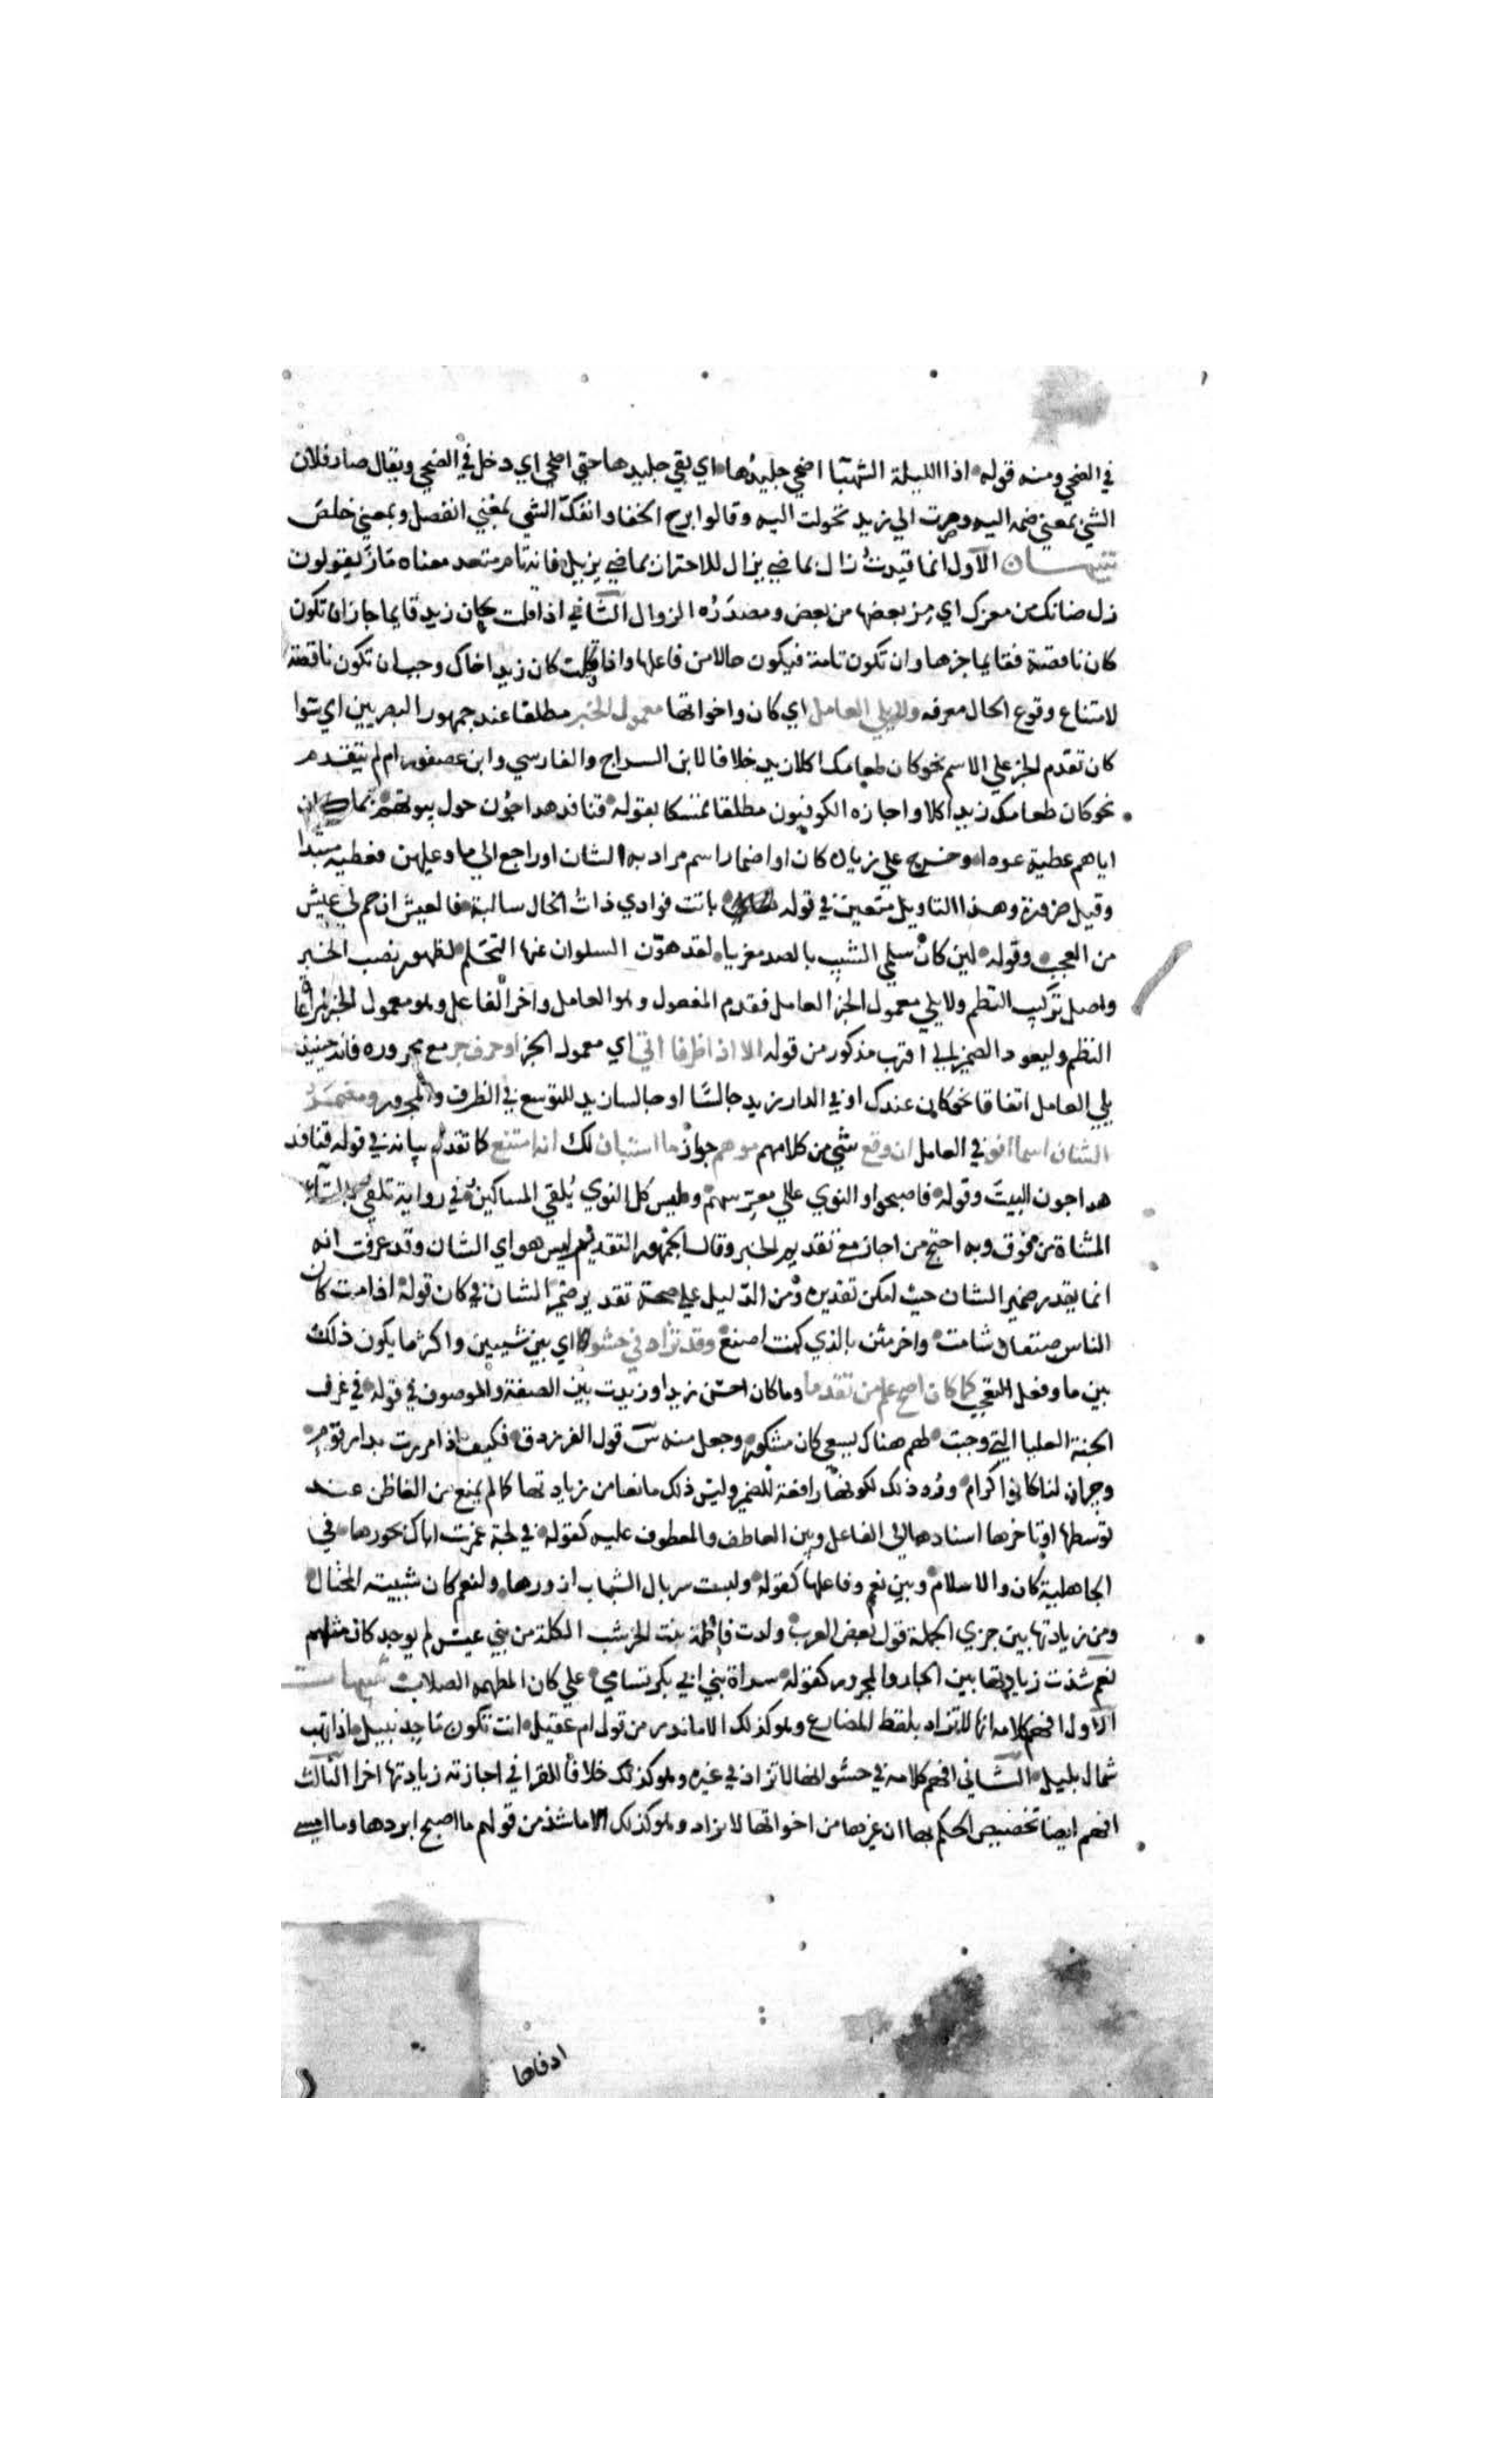 في الضحي ومنه قوله اذا الليلة الشهبآ اضحي جليدها اي بقي جليدها حتي اضحي اي دخل في الضحي ويقال صار فلان
الشي بمعني ضمه اليه وصرت الي زيد تحولت اليه وقالوا برح الخفا وانفك الشي بمعني انفصل وبمعني خلص
تنبيهان الاول انما قيدت زال بماضي يزال للاحتراز بماضي يزيل فانه تام متعد معناه ماز يقولون
زل ضانك من معزك اي مز بعضها من بعض ومصدره الزوال الثاني اذا قلت كان زيد قايما جاز ان تكون
كان ناقصة فقايما خبرها وان تكون تامة فيكون حالا من فاعلها واذا قلت كان زيد اخاك وجب ان تكون ناقصة
لامتناع وقوع الحال معرفه ولا يلي العامل اي كان واخواتها معمول الخبر مطلقا عند جمهور البصريين اي سوا
كان تقدم الخبر علي الاسم نحو كان طعامك اكلا زيد خلافا لابن السراج والفارسي وابن عصفور ام لم يتقدم
نحو كان طعامك زيد اكلا واجازه الكوفيون مطلقا تمسكا بقوله قنافد هداجون حول بيوتهم بما كان
اياهم عطية عودا وخرج علي زيادة كان او اضمار اسم مراد به الشان او راجع الي ما وعليهن فعطية مبتدا
وقيل ضرورة وهذا التاويل متعين في قوله باتت فوادي ذات الخال سالبة فالعيش ان حم لي عيش
من العجب وقوله لين كان سلمي الشيب بالصد مغريا لقد هون السلوان عنها التحلم لظهور نصب الخبر
واصل تركيب النظم ولا يلي معمول الخبر العامل فقدم المفعول وهو العامل واخر الفاعل وهو معمول الخبر لمراعاة
النظم وليعود الضمير الي اقرب مذكور من قوله الا اذا ظرفا اتي اي معمول الخبر او حرف جر مع مجروره فانه حينيذ
يلي العامل اتفاقا نحو كان عندك او في الدار زيد جالسا او جالسا زيد للتوسع في الظرف والمجرور ومضمر
الشان اسما انو في العامل ان وقع شي من كلامهم موهم جواز ما استبان لك انه امتنع كما تقدم بيانه في قوله قنافذ
هداجون البيت وقوله فاصبحوا والنوي عالي معرسهم وليس كل النوي يلقي المساكين في رواية تلقي بالتاء
المثناة من فوق وبه احتج من اجاز مع تقديم الخبر وقال الجمهور التقدير ليس هو اي الشان وقد عرفت انه
انما يقدر ضمير الشان حيث امكن تقديره ومن الدليل علي صحة تقدير ضمير الشان في كان قوله اذا مت كان
الناس صنفان شامت واخر مثن بالذي كنت اصنع وقد تزاد في حشو اي بين شييين واكثر ما يكون ذلك
بين ما وفعل التعجب كما كان اصح علم من تقدما وما كان احسن زيدا وزيدت بين الصفة والموصوف في قوله في غرف
الجنة العليا التي وجبت لهم هناك بسعي كان مشكور وجعل منه س قول الفرزدق فكيف اذا مررت بدار قوم
وجيران لنا كانوا كرام ورد ذلك لكونها رافعة للضمير وليس ذلك مانعا من زيادتها كما لم يمنع من الغا ظن عند
توسطها او تاخرها اسنادها الي الفاعل وبين العاطف والمعطوف عليه كقوله في لجة غمرت اباك بحورها في
الجاهلية كان والاسلام وبين نعم وفاعلها كقوله ولبست سربال الشباب ازورها ولنعم كان شبيبة المختال
ومن زيادتها بين جزي الجملة قول بعض العرب ولدت فاطمة بنت الخرشب الكملة من بني عبس لم يوجد كان مثلهم
نعم شذت زيادتها بين الجار والمجرور كقوله سراة بني ابي بكر تسامي علي كان المطهمة الصلاب تنبيهات
الاول افهم كلامه انها لا تزاد بلفظ المضارع وهو كذلك الا ما ندر من قول ام عقيل انت تكون ماجد نبيل اذا تهب
شمال بليل الثاني افهم كلامه في حشو انها لا تزاد في غيره وهو كذلك خلافا للفرا في اجازته زيادتها اخرا الثالث
افهم ايضا تخصيص الحكم بها ان غيرها من اخواتها لا يزاد وهو كذلك الا ما شذ من قولهم ما اصبح ابردها وما امسي
ادفاها